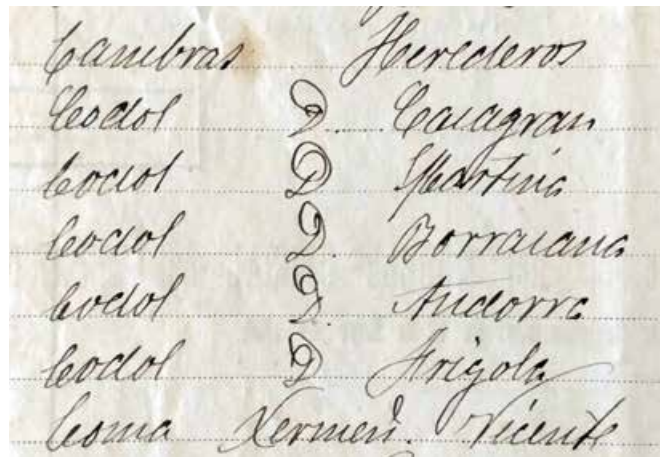 Cambras Herederos
Codol D. Casagran
Codol D. Martina
Codol D. Borraiana
Codol D. Andorra
Codol D. Frigola
Coma Xermeñ. Vicente